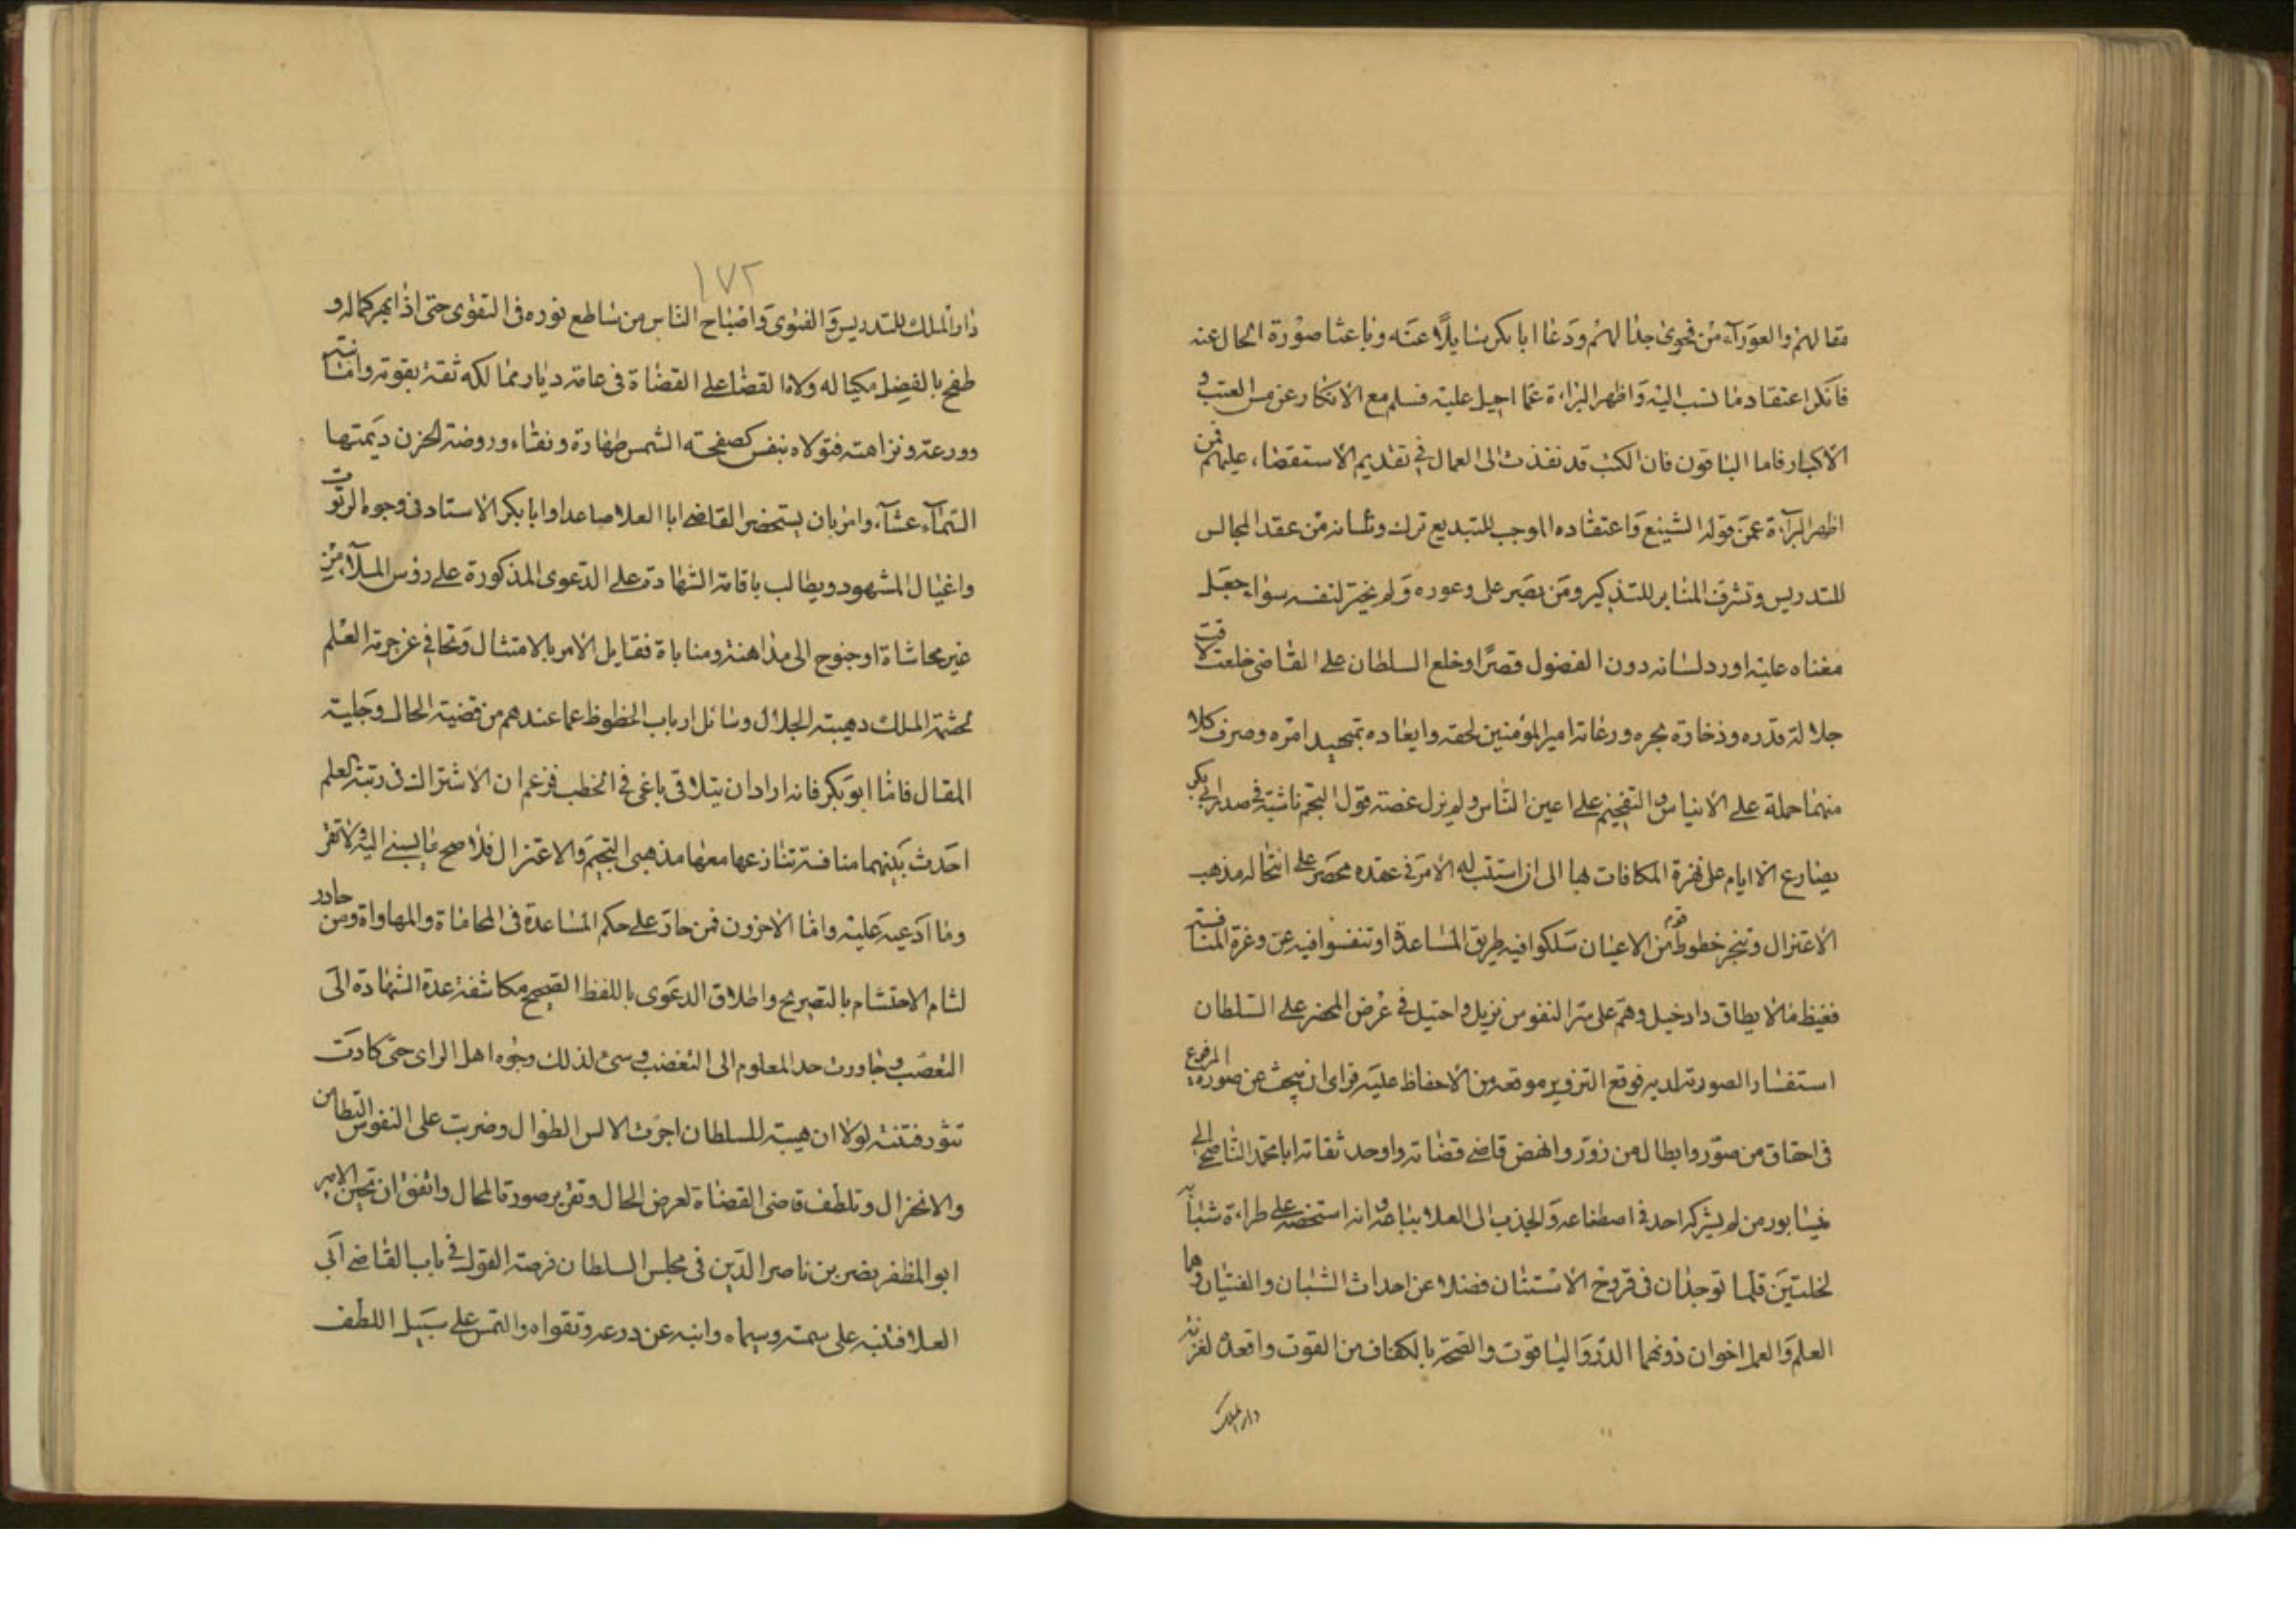 مقالهم والعوراء من فحوى جدالهم ودعا ابا بكر سايلا عنه وباعثا صورة الحال عنه
فانكر اعتقاد ما نسب اليه واظهر البراءة عما احيل عليه فسلم مع الانكار عن مس العتب و
الاكبار فاما الباقون فان الكتب قد نفذت الى العمال في تقديم الاستقصاء عليهم فمن
اظهر البراءة عن قوله الشنيع واعتقاده الموجب للتبديع ترك وشانه من عقد المجالس
للتدريس وتشرف المنابر للتذكير ومن يصر على وعوره ولم يختر لنفسه سواه جعل
مغناه عليه او رد لسانه دون الفضول قصرا وخلع السلطان على القاضي خلعة لاقت
جلالة قدره وذخارة بحره ورعاية امير المؤمنين لحقه وايعاده بتمهيد امره وصرف كلا
منهما حملة على الايناس والتفخيم على اعين الناس ولم يزل غصة قول التجسم ناشبة في صدر ابي بكر
يصارع الايام على نفرة المكافات بها الى ان استتب له الامر في عقده محضر على انتحاله مذهب
الاعتزال وتنجز خطوط قوم من الاعيان سلكوا فيه طريق المساعدة او تنفسوا فيه عن وغرة المنافسة
فغيظ ما لا يطاق داء دخيل وهم على سر النفوس نزيل واحتيل في عرض المحضر على السلطان
استفسار الصورة لديه فوقع التزوير موقعه من الاحفاظ عليه فراى ان يبحث عن صورة المرفوع
في احقاق من صور وابطال من زور وانهض قاضي قضاته واوحد ثقاته ابا محمد الناصحي الى
نيسابور من لم يشركه احد في اصطناعه والجذب الى العلا بباعه انه استخصه على طراءة شبابه
لخلتين قلما توجدان في قروح الاسنان فضلا عن احداث الشبان والفتيان وهما
العلم والعمل اخوان دونهما الدر والياقوت والصحة بالكفاف من القوت واقعده لغزنة
دار الملك
١٧٢
دار الملك للتدريس والفتوى واصباح الناس من ساطع نوره في التقوى حتى اذا بهر كماله و
طفح بالفضل مكياله ولاه القضا على القضاة في عامة ديار ممالكه ثقة بقوته وامانته
وورعه ونزاهته فتولاه بنفس كصفحة الشمس طهارة ونقاء وروضة الحزن ديمتها
السماء عشاء وامر بان يستحضر القاضي ابا العلا صاعدا وابا بكر الاستاد في وجوه الرتوت
واعيان المشهود ويطالب باقامة الشهادة على الدعوى المذكورة على رؤس الملاء من
غير محاشاة او جنوح الى مداهنة ومناباة فقابل الامر بالامتثال وتحافي غرجوته العلم
لحشمة الملك وهيبة الجلال وسائل ارباب الخطوط عما عندهم من قضية الحال وجلية
المقال فاما ابو بكر فانه اراد ان يتلافى باغي في الخطب فزعم ان الاشتراك في رتبة العلم
احدث بينهما منافسة تنازعها معها مذهبي التجسم والاعتزال فلا صح ما ينسبني اليه ولا تقرر
وما ادعيه عليه واما الاخرون فمن جاد على حكم المساعدة في المحاماة والمهاواة ومن حادر
لثام الاحتشام بالتصريح واطلاق الدعوى باللفظ الصحيح مكاشفة عدة الشهادة الى
التعصب وجاوزت حد المعلوم الى التغضب وسئ لذلك وجوه اهل الراى حتى كادت
تثور فتنة لولا ان هيبة للسلطان اجرت الالس الطوال وضربت على النفوس التطامن
والانخزال وتلطف قاضي القضاة لعرض الحال وتقرير صورة المحال واتفق ان تحين الامير
ابو المظفر نصر بن ناصر الدين في مجلس السلطان فرصة القول في باب القاضي ابي
العلا فنبه على سمته وسيماه وانبه عن ورعه وتقواه والتمس على سبيل اللطف